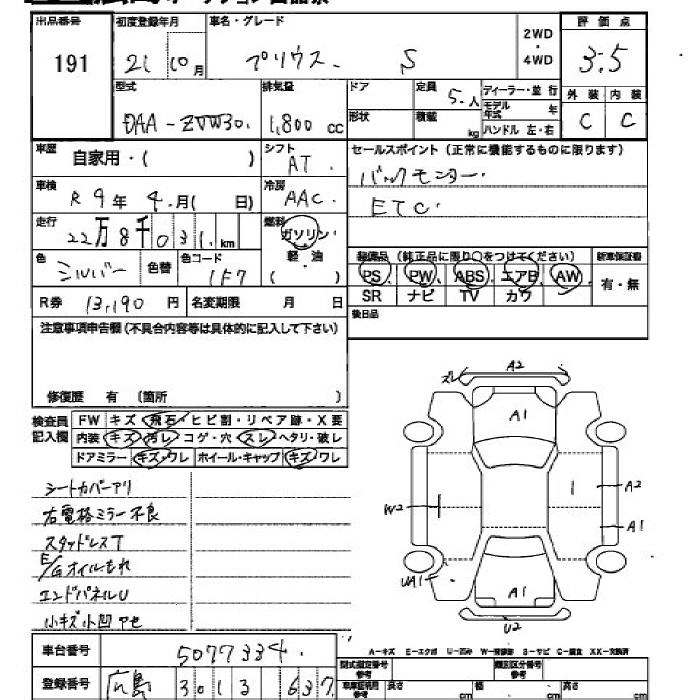 出品番号 初度登録年月 車名・グレード 2WD・4WD 評価点
191 21 10月 プリウス S 3.5
型式 排気量 ドア 定員 5.人 ディーラー・並行 外装 内装
DAA-ZVW30. 1,800 cc 形状 積載 kg モデル年式 年 C C
ハンドル 左・右
車歴 自家用・( ) シフト AT. セールスポイント(正常に機能するものに限ります)
車検 R9年 4.月( 日) 冷房 AAC. バックモニター.
ETC.
走行 22万8千031.km 燃料 ガソリン・軽・油 ( )
色 シルバー 色替 色コード 1F7
装備品(純正品に限り○をつけてください) 新車保証書
PS、PW、ABS、エアB、AW 有・無
SR ナビ TV カワ
R券 13,190 円 名変期限 月 日
後日品
注意事項申告欄(不具合内容等は具体的に記入して下さい)
修復歴 有 (箇所 )
検査員記入欄 FW キズ・飛石・ヒビ割・リペア跡・X要
内装 キズ・汚レ・コゲ・穴・スレ・ヘタリ・破レ
ドアミラー キズ・ワレ ホイール・キャップ キズ・ワレ
シートカバーアリ
右電格ミラー不良
スタッドレスT
E/Gオイルもれ
エンドパネルU
小キズ小凹アセ
ズレ A2
A1
W2 A2
A1
UA1 A1
U2
A-キズ E-エクボ U-凹み W-補修跡 S-サビ C-腐食 XX-交換済
車台番号 5077334.
登録番号 広島 301 3 637
型式指定番号 参考 類別区分番号 参考
長さ cm 幅 cm 高さ cm